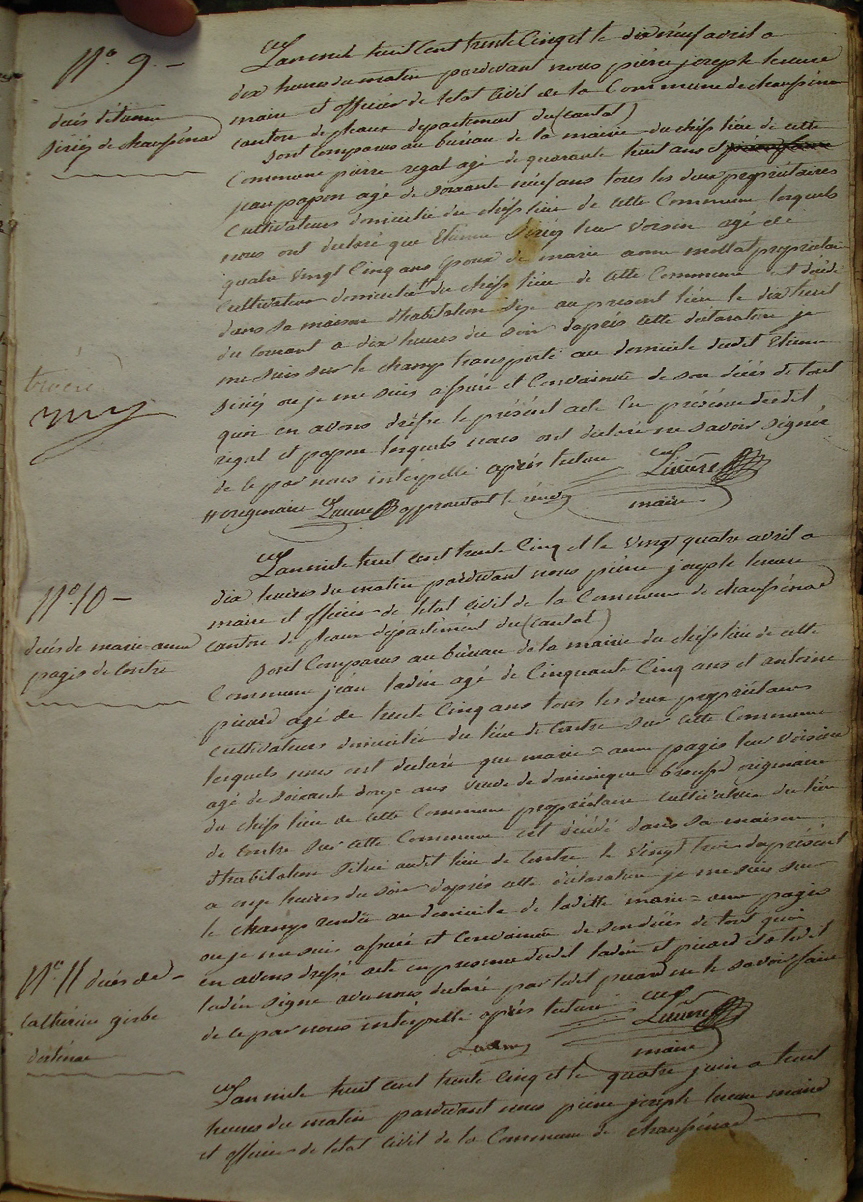 N° 9 -
décès d'étienne
Siriey de chaussénac
L'an mile huit cent trente Cinq et le dixneuf avril a
dix heures du matin pardevant nous pierre joseph
maire et officier de letat civil de la Commune de chaussénac
canton de pleaux département du (cantal)
Sont Comparus au bureau de la mairie du chef lieu de cette
Commune pierre regal agé de quarante huit ans et
jean papon agé de soixante neuf ans tous les deux propriétaires
Cultivateurs domiciliés du chef lieu de cette Commune lesquels
nous ont declaré que Etienne Siriey leur Voisin agé de
quatre Vingt Cinq ans époux de marie anne propriétaire
Cultivateur domicilié du chef lieu de cette Commune est décédé
dans sa maison d'habitation Size au present lieu le dix huit
du Courant a dix heures du soir dapres cette declaration je
me suis sur le champ transporté au domicile dudit Etienne
Siriey ou je me suis assuré et Convaincu de son décès de tout
quoi en avons dréssé le présent acte En présence dudit
regal et papon lesquels nous ont declaré ne savoir signer
de ce par nous interpellé après lecture
## originaire approuvant le
maire
N° 10 -
décés de marie-anne
pagis de Contre
L'an mile huit cent trente Cinq et le Vingt quatre avril a
dix heures du matin pardevant nous pierre joseph
maire et officier de letat civil de la Commune de chaussénac
canton de pleaux département du (cantal)
Sont Comparus au bureau de la mairie du chef lieu de cette
Commune jean ladin agé de Cinquante Cinq ans et antoine
picard agé de trente Cinq ans tous les deux propriétaires
cultivateurs domiciliés du lieu de Contre Sur cette Commune
lesquels nous ont declaré que marie = anne pagis leur Voisine
agé de soixante douze ans Veuve de dominique originaire
du chef lieu de cette Commune propriétaire Cultivateur du lieu
de Contre Sur cette Commune est décédé dans sa maison
d'habitation Située audit lieu de Contre le Vingt trois du présent
a onze heures du soir d'après cette déclaration je me suis sur
le champ rendu au domicile de laditte marie = anne pagis
ou je me suis assuré et Convaincu de son décès de tout quoi
en avons dréssé acte en presence dudit ladin et picard et ledit
ladin signé avec nous declaré par ledit picard ne le savoir faire
de ce par nous interpellé après lecture
maire
N° 11 décés de -
Catherine girbe
L'an mile huit cent trente Cinq et le quatre juin a huit
heures du matin pardevant nous pierre joseph maire
et officier de letat Civil de la Commune de chaussénac